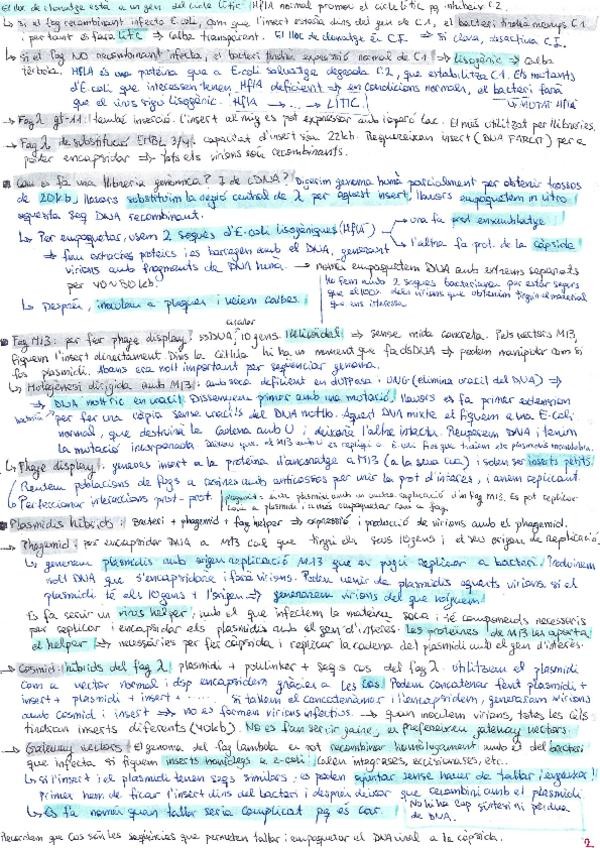 El lloc de clonatge està a un gen del cicle lític. HflA normal promou el cicle lític pq inhibeix C2.
↳ Si el fag recombinant infecta E.coli, com que l'insert estarà dins del gen de C1, el bacteri tindrà menys C1
i per tant es farà lític ⇒ calba transparent. El lloc de clonatge és C.I ⇒ si clona, desactiva C.I.
↳ Si el fag NO recombinant infecta, el bacteri tindrà expressió normal de C1 ⇒ lisogènic ⇒ calba
tèrbola. HflA és una proteïna que a E.coli salvatge degrada C2, que estabilitza C1. Els mutants
d'E.coli que interessen tenen HflA deficient ⇒ en condicions normals, el bacteri farà
que el virus sigui lisogènic. HflA ... ⇒ LITIC
↳ MUTAR HflA
→ Fag λ gt-11: també inserció. L'insert al mig es pot expressar amb operó Lac. El més utilitzat per llibreries.
→ Fag λ de substitució EMBL 3/4: capacitat d'insert són 22kb. Requereixen insert (DNA FARCIT) per a
poder encapsidar ⇒ tots els virions són recombinants.
Com es fa una llibreria genòmica? I de cDNA? Digerim genoma humà parcialment per obtenir trossos
de 20kb, llavors substituïm la regió central de λ per aquest insert, llavors empaquetem in vitro
aquesta seq DNA recombinant.
↳ Per empaquetar, usem 2 soques d'E.coli lisogèniques (HflA) una fa prot ensamblatge
l'altra fa pot. de la càpside
⇒ fan extractes proteics i es barregen amb el DNA, generant
virions amb fragments de DNA humà. → només empaquetem DNA amb extrems separats
per 40kb 50kb.
Ho fem amb 2 soques bacterianes per estar segurs
que el 100% dels virions que obtenim tinguin el material
que ens interessa
↳ Després, inoculem a plaques i veiem calbes.
circular
Fag M13: per fer phage display! ssDNA, 10 gens. Helicoidal! ⇒ sense mida concreta. Pels vectors M13,
fiquem l'insert directament. Dins la cèl·lula hi ha un moment que fa dsDNA ⇒ podem manipular com si
fos plasmidi. Abans era molt important per seqüenciar genoma.
↳ Mutagènesi dirigida amb M13: amb soca deficient en dUTPasa i UNG (elimina uracil del DNA) ⇒
⇒ DNA motlle en uracil. Dissenyem primer amb una mutació! llavors es fa primer extension
per fer una còpia sense uracils del DNA motllo. Aquest DNA mixte el fiquem a una E-coli
normal, que destruirà la cadena amb U i deixarà l'altra intacta. Recuperem DNA i tenim
la mutació incorporada
↳ Phage display! generes insert a la proteïna d'ancoratge a M13 (a la seva cua) i solen ser inserts petits
Reuteu poblacions de fags a resines amb anticossos per unir la prot d'interès, i anem replicant.
↳ Perfeccionar interaccions prot-prot.
Plasmidis híbrids: Bacteri + phagemid i fag helper ⇒ expressió i producció de virions amb el phagemid.
→ Phagemid: per encapsidar DNA a M13 cal que tingui els seus 10 gens i el seu origen de replicació.
↳ generem plasmidis amb origen replicació M13 que es pugui replicar a bacteri. Produirem
molt DNA que s'encapsidarà i farà virions. Poden venir de plasmidis aquests virions si el
plasmidi té els 10 gens + l'origen ⇒ generarem virions del que volguem.
Es fa servir un virus helper! amb el que infectem la mateixa soca i té components necessaris
per replicar i encapsidar els plasmidis amb el gen d'interès. Les proteïnes de M13 les aporta
el helper ⇒ necessàries per fer càpsida i replicar la cadena del plasmidi amb el gen d'interès.
→ Cosmid: híbrids del fag λ! plasmidi + polilinker + seqs cos del fag λ. Utilitzem el plasmidi
com a vector normal i dsp encapsidem gràcies a les cos! Podem concatenar fent plasmidi +
insert + plasmidi + insert + ..... si tallem el concatenàmer i l'encapsidem, generarem virions
amb cosmid i insert ⇒ no es formen virions infectius. → quan inoculem virions, totes les cèls
tindran inserts diferents (40kb). No es fan servir gaire, es prefereixen gateway vectors.
→ Gateway vectors! El genoma del fag lambda es pot recombinar homòlogament amb el del bacteri
que infecta si fiquem inserts homòlegs a e-coli! Calen integrases, eccisionases, etc..
↳ Si l'insert i el plasmidi tenen seqs similars, es poden ajuntar sense haver de tallar i enganxar!
Primer hem de ficar l'insert dins del bacteri i després deixar que recombini amb el plasmidi
↳ Es fa només quan tallar seria complicat pq és car.
No hi ha cap síntesi ni pèrdua
de DNA.
Recordem que Cos són les seqüències que permeten tallar i empaquetar el DNA viral a la càpsida.
2